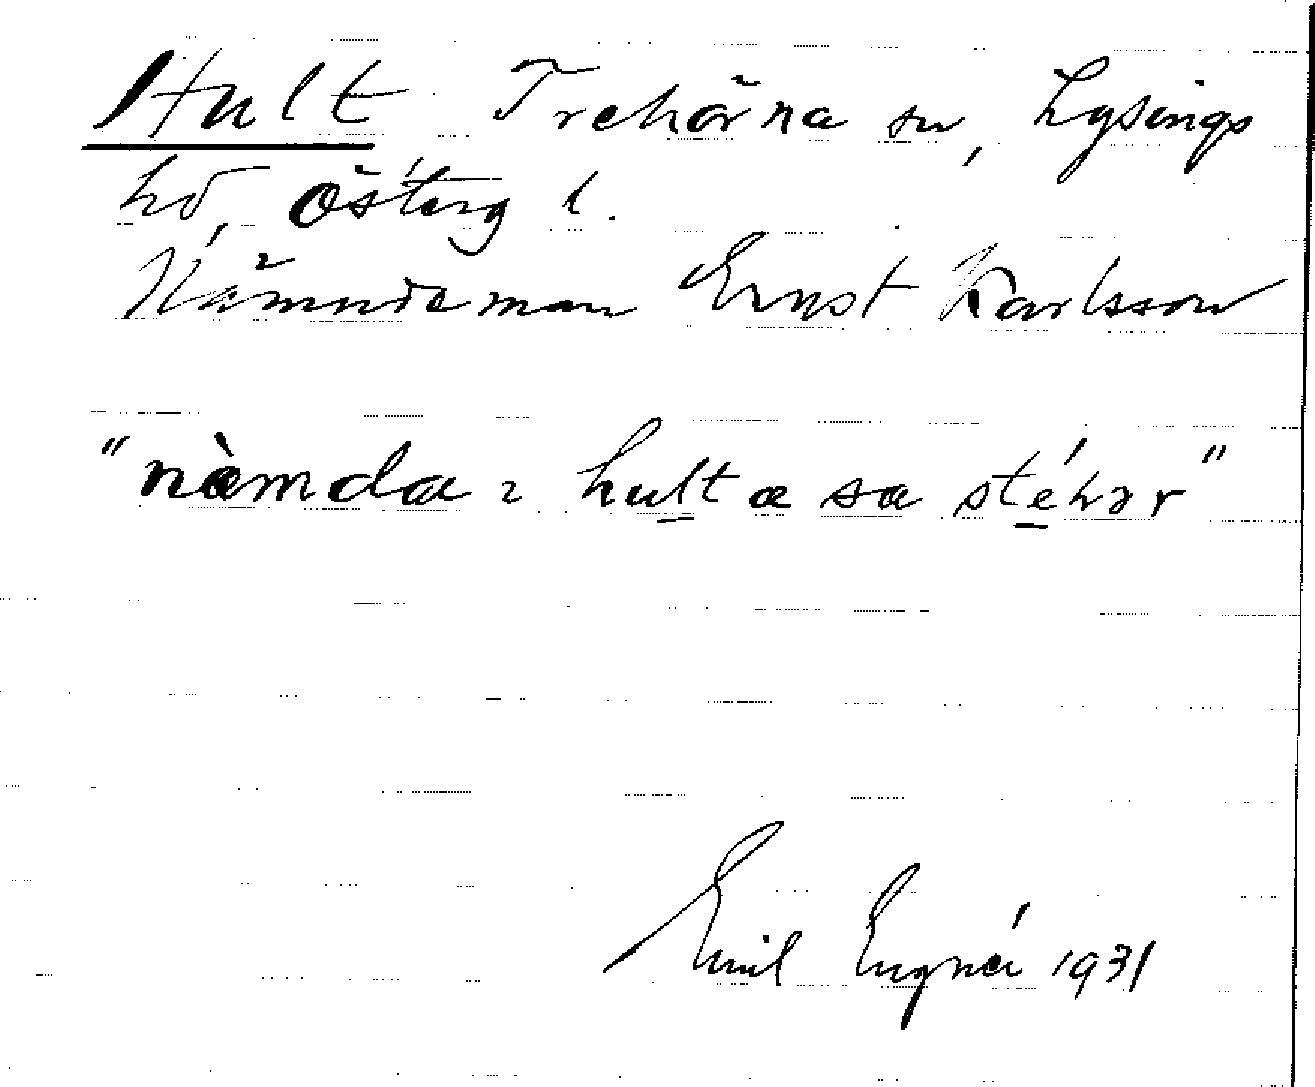 Hult Trehörna sn, Lysings
hd, Österg l.
Nämndeman Ernst Karlsson
"nàmda i hulta sa stéhər"
Emil Engnér 1931